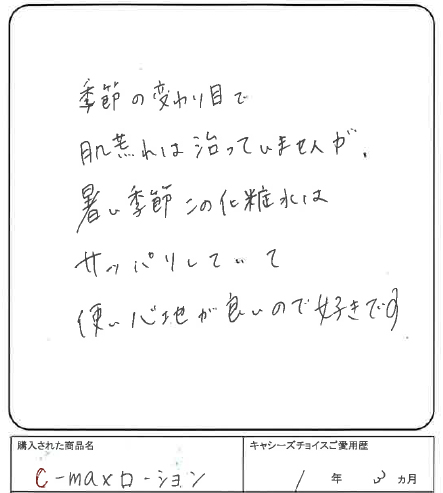 季節の変わり目で
肌荒れは治っていませんが、
暑い季節この化粧水は
サッパリしていて
使い心地が良いので好きです
購入された商品名
C-maxローション
キャシーズチョイスご愛用歴
1年3ヵ月